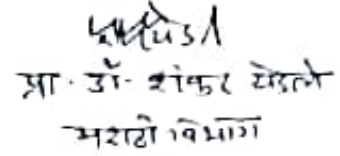 प्रा. डॉ. शंकर येडले
मराठी विभाग